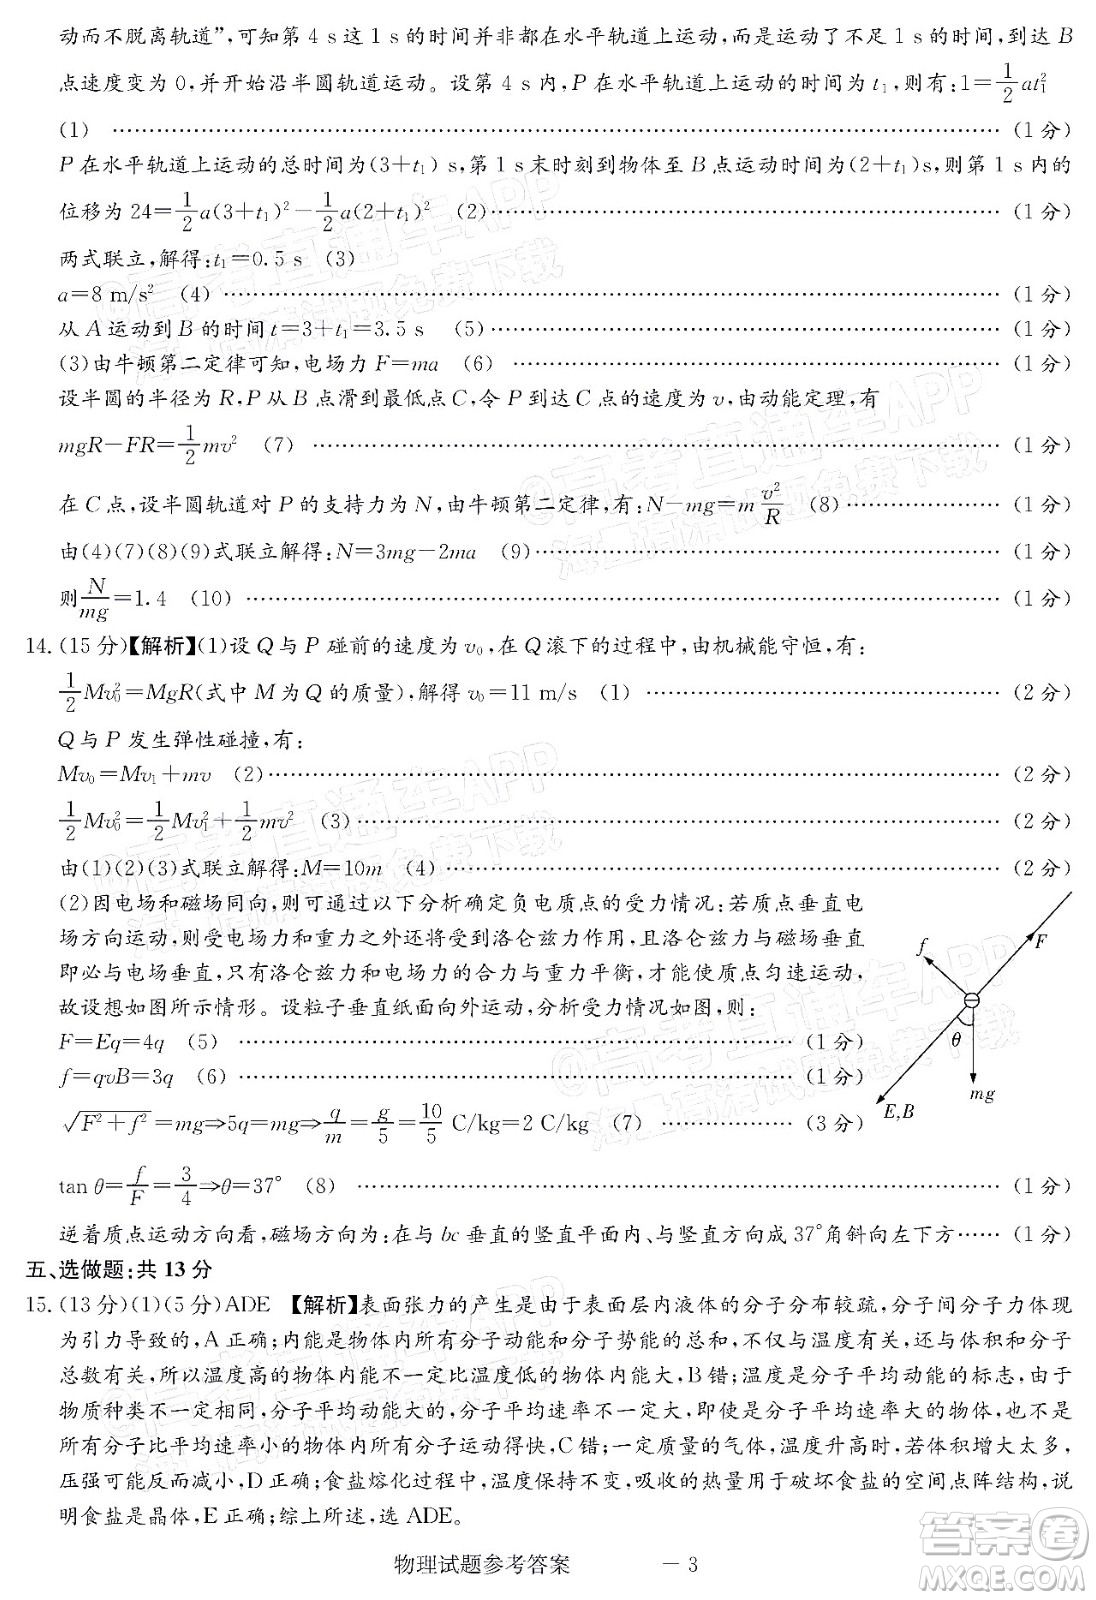 动而不脱离轨道”,可知第 4 s 这 1 s 的时间并非都在水平轨道上运动,而是运动了不足 1 s 的时间,到达 B
点速度变为 0,并开始沿半圆轨道运动。设第 4 s 内,P 在水平轨道上运动的时间为 t₁,则有:1=1/2 at₁²
(1) …… (1 分)
P 在水平轨道上运动的总时间为(3+t₁) s,第 1 s 末时刻到物体至 B 点运动时间为(2+t₁)s,则第 1 s 内的
位移为 24=1/2 a(3+t₁)²−1/2 a(2+t₁)² (2)…… (1 分)
两式联立,解得:t₁=0.5 s (3)
a=8 m/s² (4) …… (1 分)
从 A 运动到 B 的时间 t=3+t₁=3.5 s (5) …… (1 分)
(3)由牛顿第二定律可知,电场力 F=ma (6) …… (1 分)
设半圆的半径为 R,P 从 B 点滑到最低点 C,令 P 到达 C 点的速度为 v,由动能定理,有
mgR−FR=1/2 mv² (7) …… (1 分)
在 C 点,设半圆轨道对 P 的支持力为 N,由牛顿第二定律,有:N−mg=m v²/R (8)…… (1 分)
由(4)(7)(8)(9)式联立解得:N=3mg−2ma (9)…… (1 分)
则 N/mg=1.4 (10) …… (1 分)
14.(15 分)【解析】(1)设 Q 与 P 碰前的速度为 v₀,在 Q 滚下的过程中,由机械能守恒,有:
1/2 Mv₀²=MgR(式中 M 为 Q 的质量),解得 v₀=11 m/s (1) …… (2 分)
Q 与 P 发生弹性碰撞,有:
Mv₀=Mv₁+mv (2)…… (2 分)
1/2 Mv₀²=1/2 Mv₁²+1/2 mv² (3)…… (2 分)
由(1)(2)(3)式联立解得:M=10m (4)…… (2 分)
(2)因电场和磁场同向,则可通过以下分析确定负电质点的受力情况:若质点垂直电
场方向运动,则受电场力和重力之外还将受到洛仑兹力作用,且洛仑兹力与磁场垂直
即必与电场垂直,只有洛仑兹力和电场力的合力与重力平衡,才能使质点匀速运动,
故设想如图所示情形。设粒子垂直纸面向外运动,分析受力情况如图,则:
F=Eq=4q (5) …… (1 分)
f=qvB=3q (6) …… (1 分)
√(F²+f²)=mg⇒5q=mg⇒q/m=g/5=10/5 C/kg=2 C/kg (7) …… (3 分)
tan θ=f/F=3/4⇒θ=37° (8) …… (1 分)
逆着质点运动方向看,磁场方向为:在与 bc 垂直的竖直平面内、与竖直方向成 37°角斜向左下方…… (1 分)
f
F
θ
mg
E,B
五、选做题:共 13 分
15.(13 分)(1)(5 分)ADE 【解析】表面张力的产生是由于表面层内液体的分子分布较疏,分子间分子力体现
为引力导致的,A 正确;内能是物体内所有分子动能和分子势能的总和,不仅与温度有关,还与体积和分子
总数有关,所以温度高的物体内能不一定比温度低的物体内能大,B 错;温度是分子平均动能的标志,由于
物质种类不一定相同,分子平均动能大的,分子平均速率不一定大,即使是分子平均速率大的物体,也不是
所有分子比平均速率小的物体内所有分子运动得快,C 错;一定质量的气体,温度升高时,若体积增大太多,
压强可能反而减小,D 正确;食盐熔化过程中,温度保持不变,吸收的热量用于破坏食盐的空间点阵结构,说
明食盐是晶体,E 正确;综上所述,选 ADE。
物理试题参考答案 — 3
答案圈
MXQE.COM
@高考直通车APP
海量高清试题免费下载
@高考直通车APP
海量高清试题免费下载
@高考直通车APP
海量高清试题免费下载
@高考直通车APP
海量高清试题免费下载
@高考直通车APP
海量高清试题免费下载